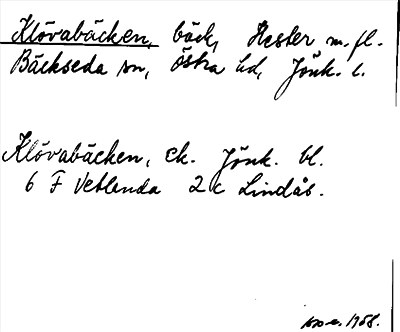 Klövabäcken, bäck, Hester m. fl.
Bäckseda sn, östra hd, Jönk. l.
Klövabäcken, ek. Jönk. bl.
6 F Vetlanda 2 c Lindås.
1958.